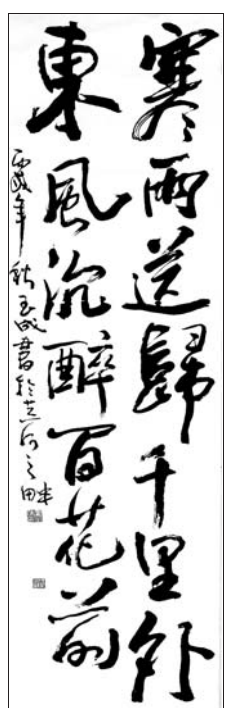 寒雨送歸千里外
東風沉醉百花前
丙戌年秋玉成書於芝河之畔